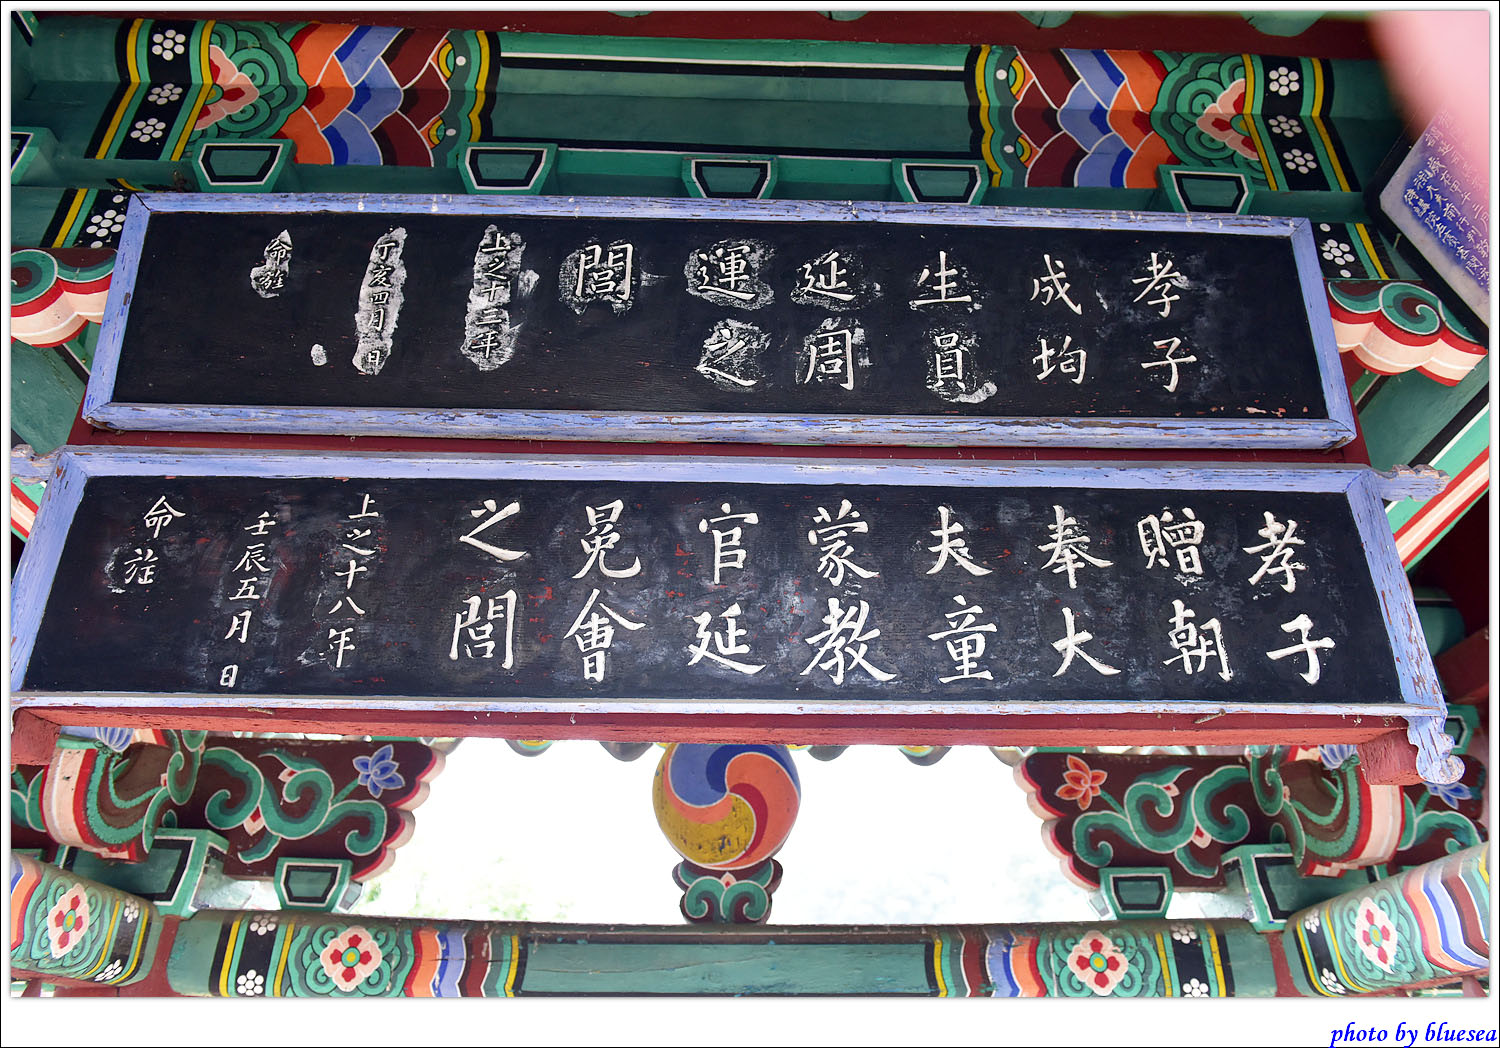 孝子
成均
生員
延周
運之
閭
上之十三年
丁亥四月 日
命旌
孝子
贈朝
奉大
夫童
蒙教
官延
冕會
之閭
上之十八年
壬辰五月 日
命旌
photo by bluesea